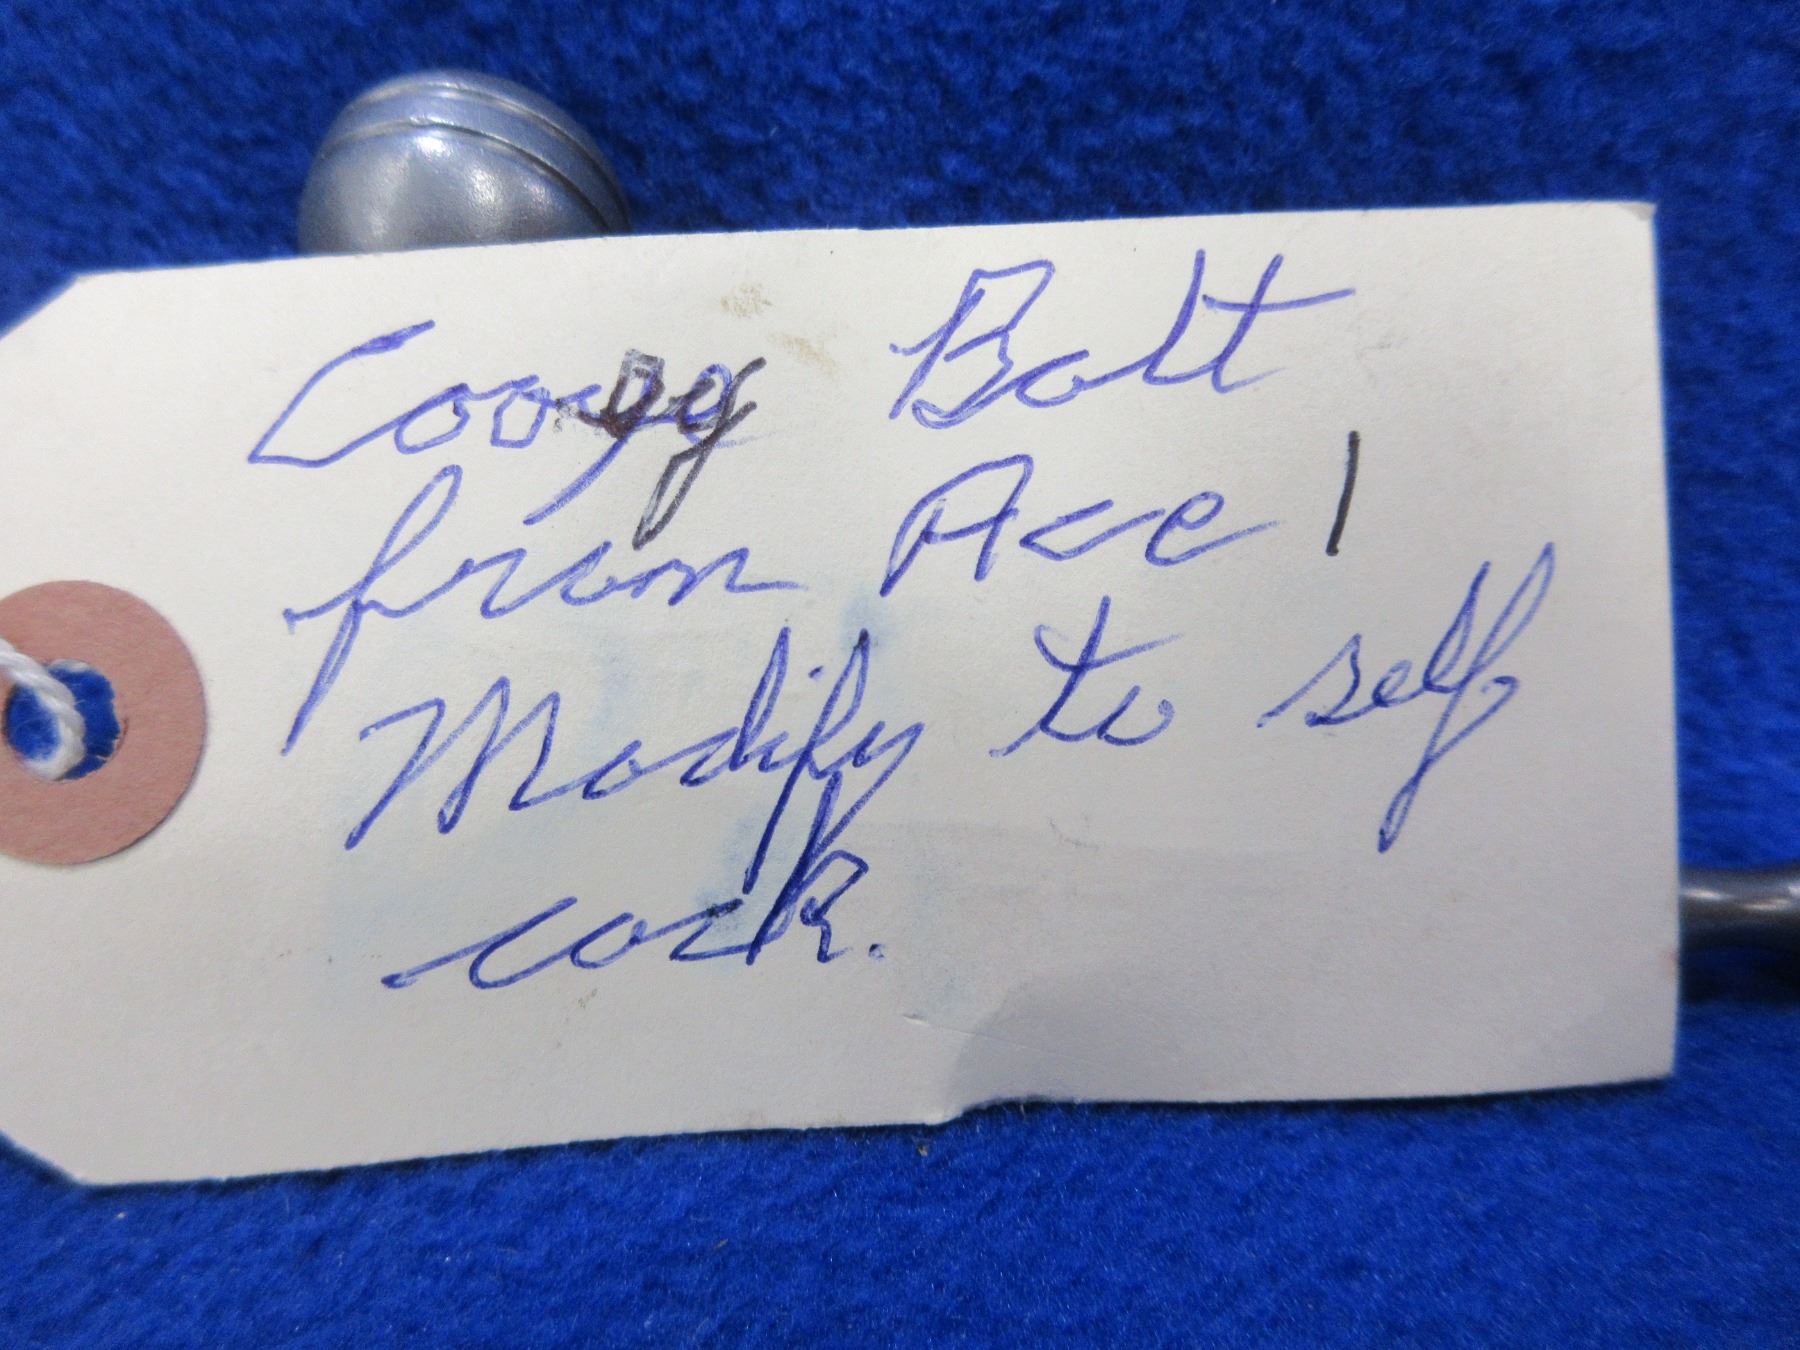 Cooey Bolt
from Ace 1
Modify to self
cock.